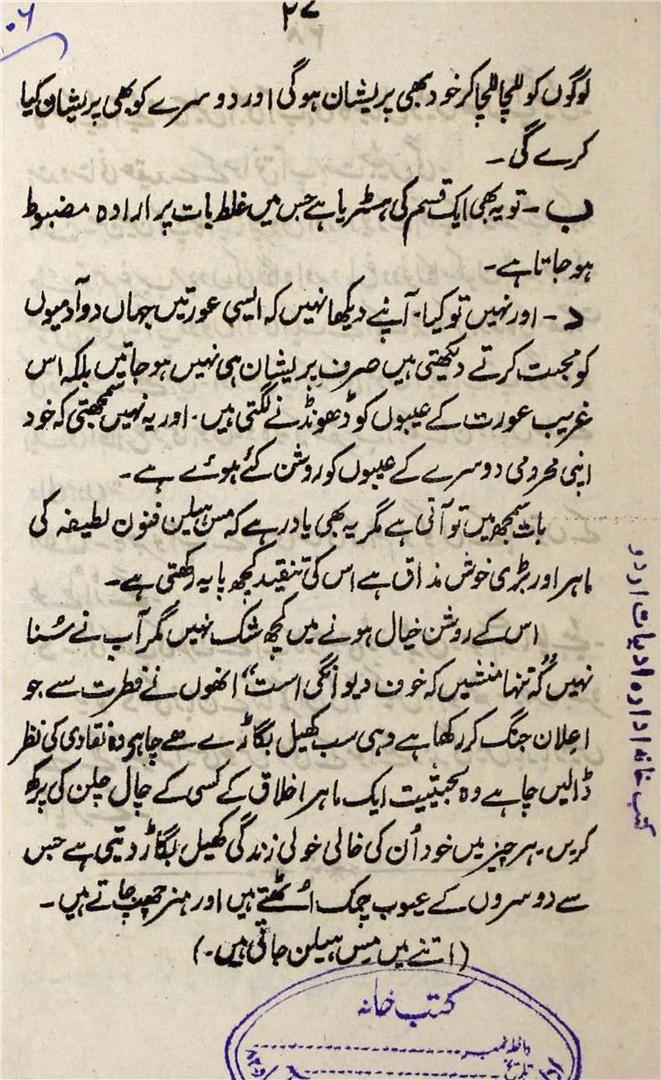 ۲۷
لوگوں کو للچا للچا کر خود بھی پریشان ہوگی اور دوسرے کو بھی پریشان کیا
کرے گی۔
ب - تو یہ بھی ایک قسم کی ہسٹریا ہے جس میں غلط بات پر ارادہ مضبوط
ہو جاتا ہے۔
د - اور نہیں تو کیا۔ آپنے دیکھا نہیں کہ ایسی عورتیں جہاں دو آدمیوں
کو محبت کرتے دیکھتی ہیں صرف پریشان ہی نہیں ہو جاتیں بلکہ اس
غریب عورت کے عیبوں کو ڈھونڈنے لگتی ہیں۔ اور یہ نہیں سمجھتی کہ خود
اپنی محرومی دوسرے کے عیبوں کو روشن کئے ہوئے ہے۔
بات سمجھ میں تو آتی ہے مگر یہ بھی یاد رہے کہ مس ہیلن فنون لطیفہ کی
ماہر اور بڑی خوش مذاق ہے اس کی تنقید کچھ پایہ رکھتی ہے۔
اس کے روشن خیال ہونے میں کچھ شک نہیں مگر آپ نے سُنا
نہیں "کہ تنہا منشیں کہ خوف دیوانگی است" انھوں نے فطرت سے جو
اعلان جنگ کر رکھا ہے وہی سب کھیل بگاڑے ہے چاہے وہ نقادی کی نظر
ڈالیں چاہے وہ بحیثیت ایک ماہر اخلاق کے کسی کے چال چلن کی پرکھ
کریں۔ ہر چیز میں خود اُن کی خالی خولی زندگی کھیل بگاڑ دیتی ہے جس
سے دوسروں کے عیوب چمک اُٹھتے ہیں اور ہنر چھپ جاتے ہیں۔
(اتنے میں مس ہیلن جاتی ہیں۔)
کتب خانہ ادارہ ادبیات اردو
کتب خانہ
داخلہ نمبر
تاریخ